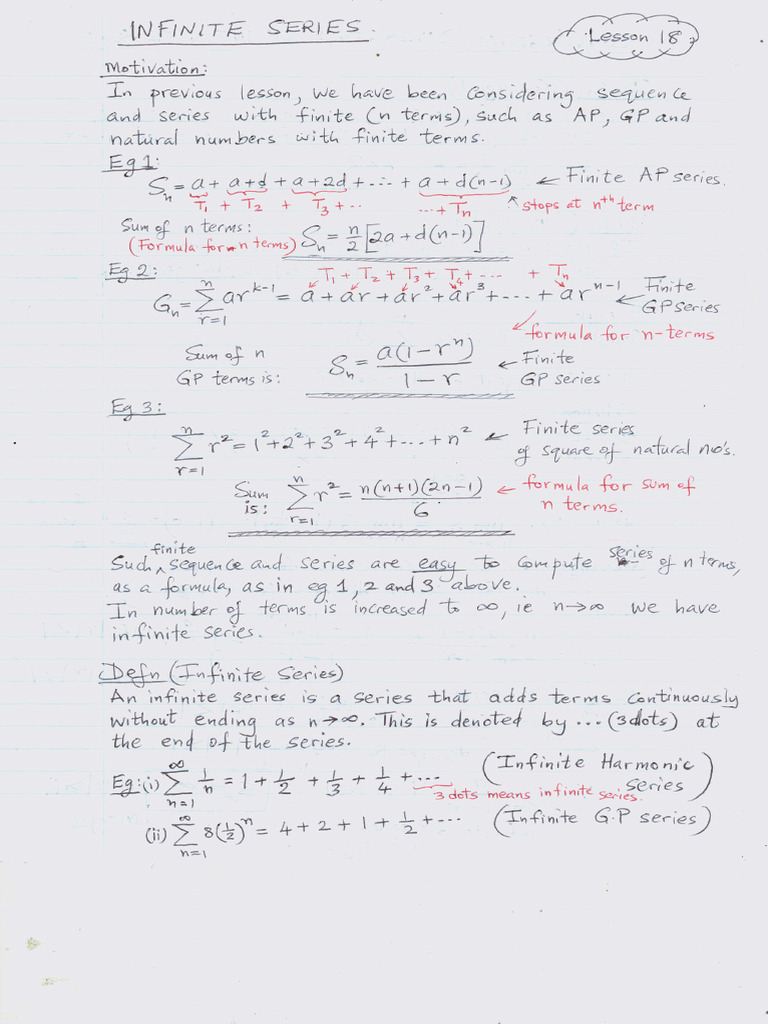 INFINITE SERIES.
Lesson 18
Motivation:
In previous lesson, we have been considering sequence
and series with finite (n terms), such as AP, GP and
natural numbers with finite terms.
Eg 1:
Sₙ = a + a+d + a+2d + ... + a+d(n-1) ← Finite AP series.
T₁ + T₂ + T₃ + ... ... + Tₙ stops at nᵗʰ term
Sum of n terms:
(Formula for n terms) Sₙ = n/2 [2a + d(n-1)]
Eg 2: T₁ + T₂ + T₃ + T₄ + ... + Tₙ
Gₙ = ∑ⁿᵣ₌₁ arᵏ⁻¹ = a + ar + ar² + ar³ + ... + arⁿ⁻¹ ← Finite GP series
formula for n-terms
Sum of n
GP terms is: Sₙ = a(1-rⁿ)/1-r ← Finite GP series
Eg 3:
∑ⁿᵣ₌₁ r² = 1² + 2² + 3² + 4² + ... + n² ← Finite series
of square of natural no's.
Sum is: ∑ⁿᵣ₌₁ r² = n(n+1)(2n-1)/6 ← formula for sum of
n terms.
Such finite sequence and series are easy to compute series of n terms,
as a formula, as in eg 1, 2 and 3 above.
In number of terms is increased to ∞, ie n→∞ we have
infinite series.
Defn (Infinite Series)
An infinite series is a series that adds terms continuously
without ending as n→∞. This is denoted by ... (3 dots) at
the end of the series.
Eg: (i) ∑^∞ₙ₌₁ 1/n = 1 + 1/2 + 1/3 + 1/4 + ... (Infinite Harmonic series)
3 dots means infinite series.
(ii) ∑^∞ₙ₌₁ 8(1/2)ⁿ = 4 + 2 + 1 + 1/2 + ... (Infinite G.P series)